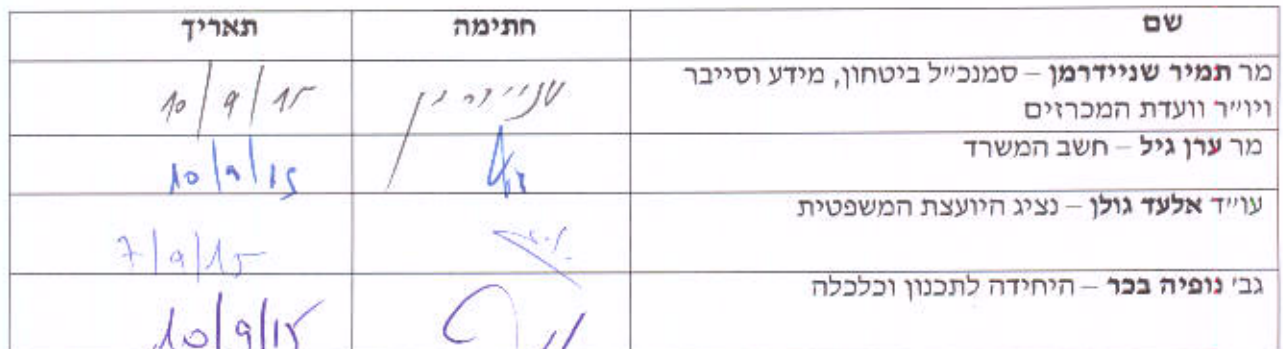 שם חתימה תאריך
מר תמיר שניידרמן – סמנכ״ל ביטחון, מידע וסייבר
ויו״ר וועדת המכרזים
שניידרמן 10/9/15
מר ערן גיל – חשב המשרד
10/9/15
עו״ד אלעד גולן – נציג היועצת המשפטית
7/9/15
גב׳ נופיה בכר – היחידה לתכנון וכלכלה
10/9/15